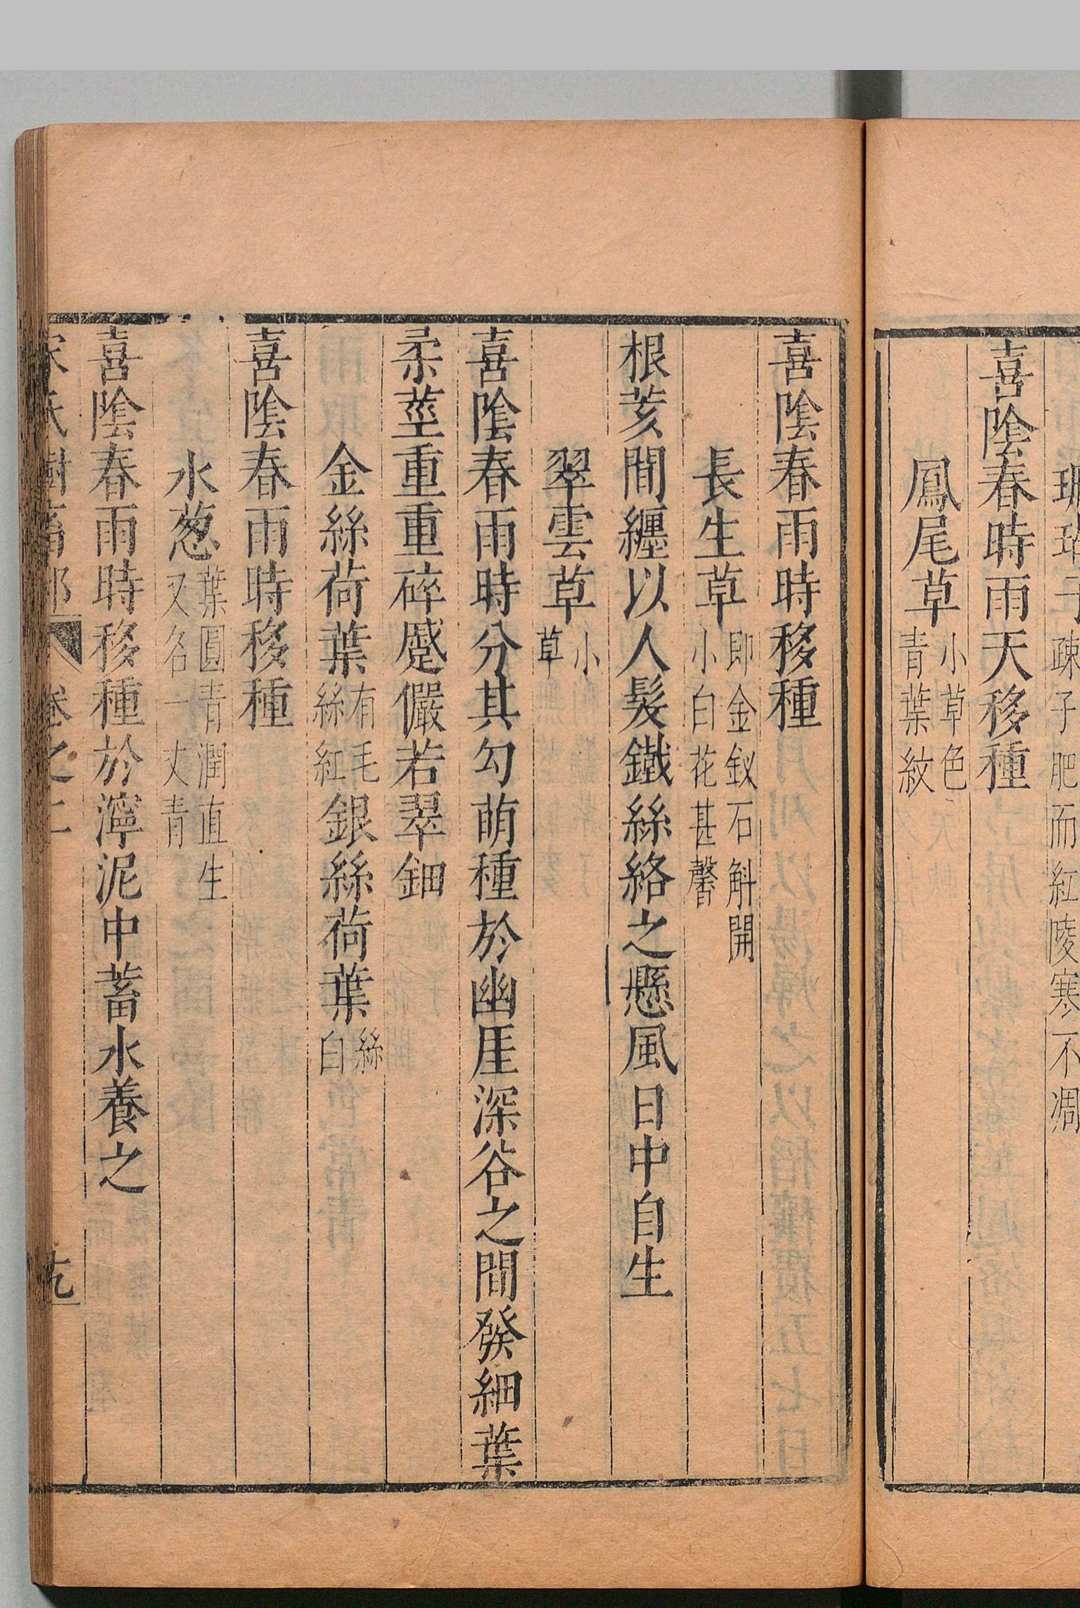 珊瑚子疎子肥而紅陵寒不凋
喜陰春時雨天移種
鳳尾草小草色青葉紋
喜陰春雨時移種
長生草即金釵石斛開小白花甚馨
根荄間纏以人髮鐵絲絡之懸風日中自生
翠雲草小草
喜陰春雨時分其勾萌種於幽厓深谷之間發細葉
柔莖重重碎蹙儼若翠鈿
金絲荷葉有毛絲紅銀絲荷葉絲白
喜陰春雨時移種
水葱葉圓青潤直生又名一丈青
喜陰春雨時移種於濘泥中蓄水養之
宋氏樹畜部 卷之二 十九